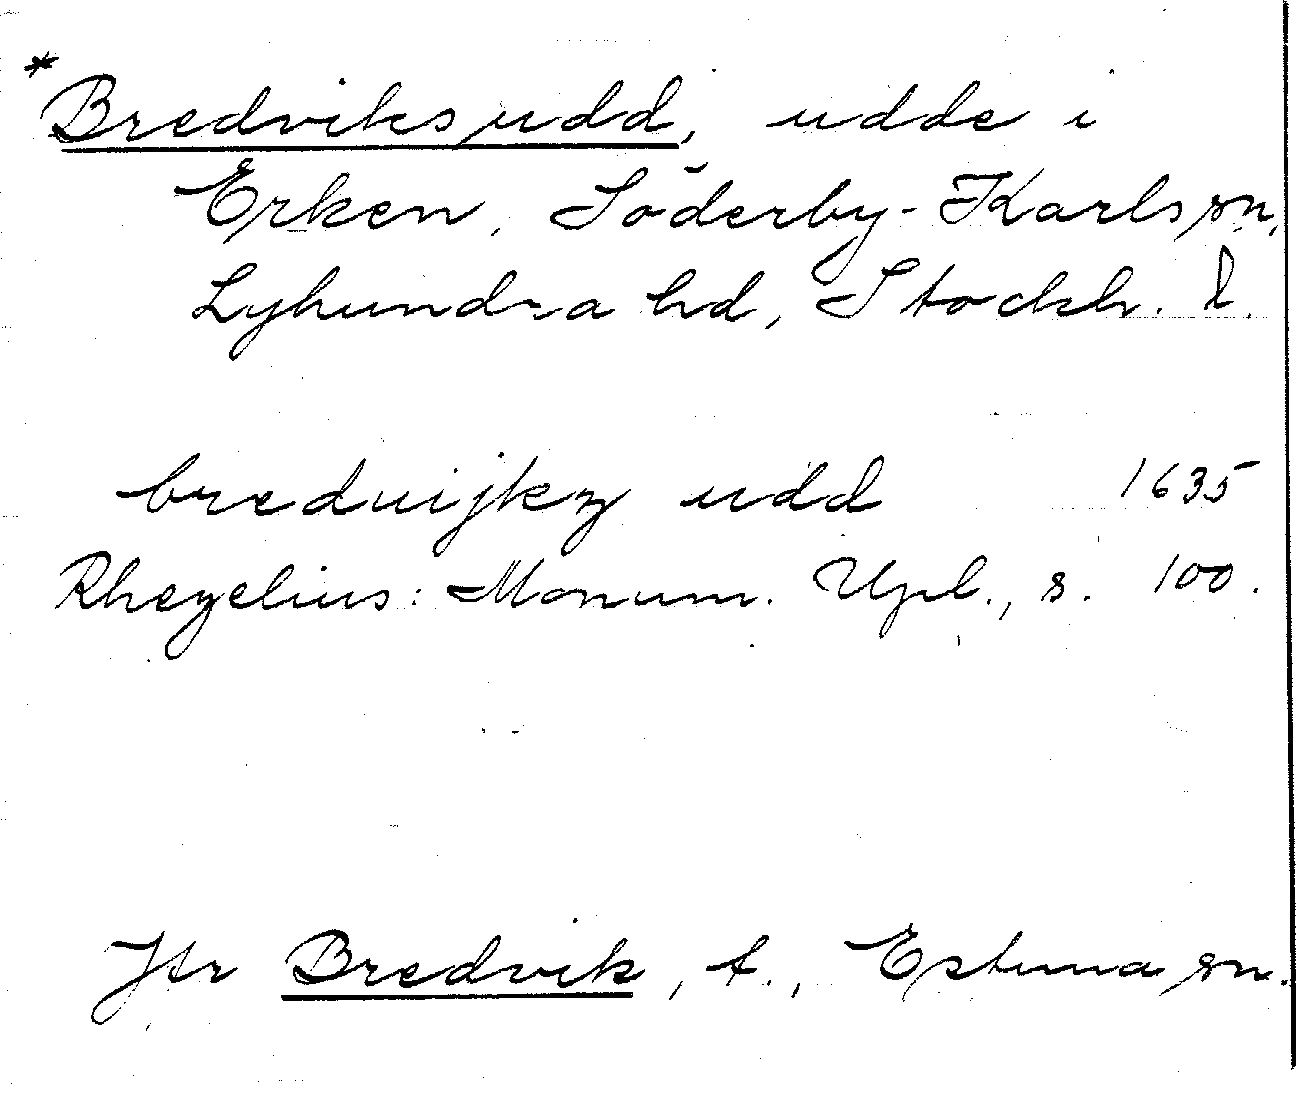 *Bredviksudd, udde i
Erken, Söderby-Karls sn,
Lyhundra hd, Stockh. l.
bredvijkz udd 1635
Rhezelius: Monum. Upl., s. 100.
Jfr Bredvik, t., Estuna sn.